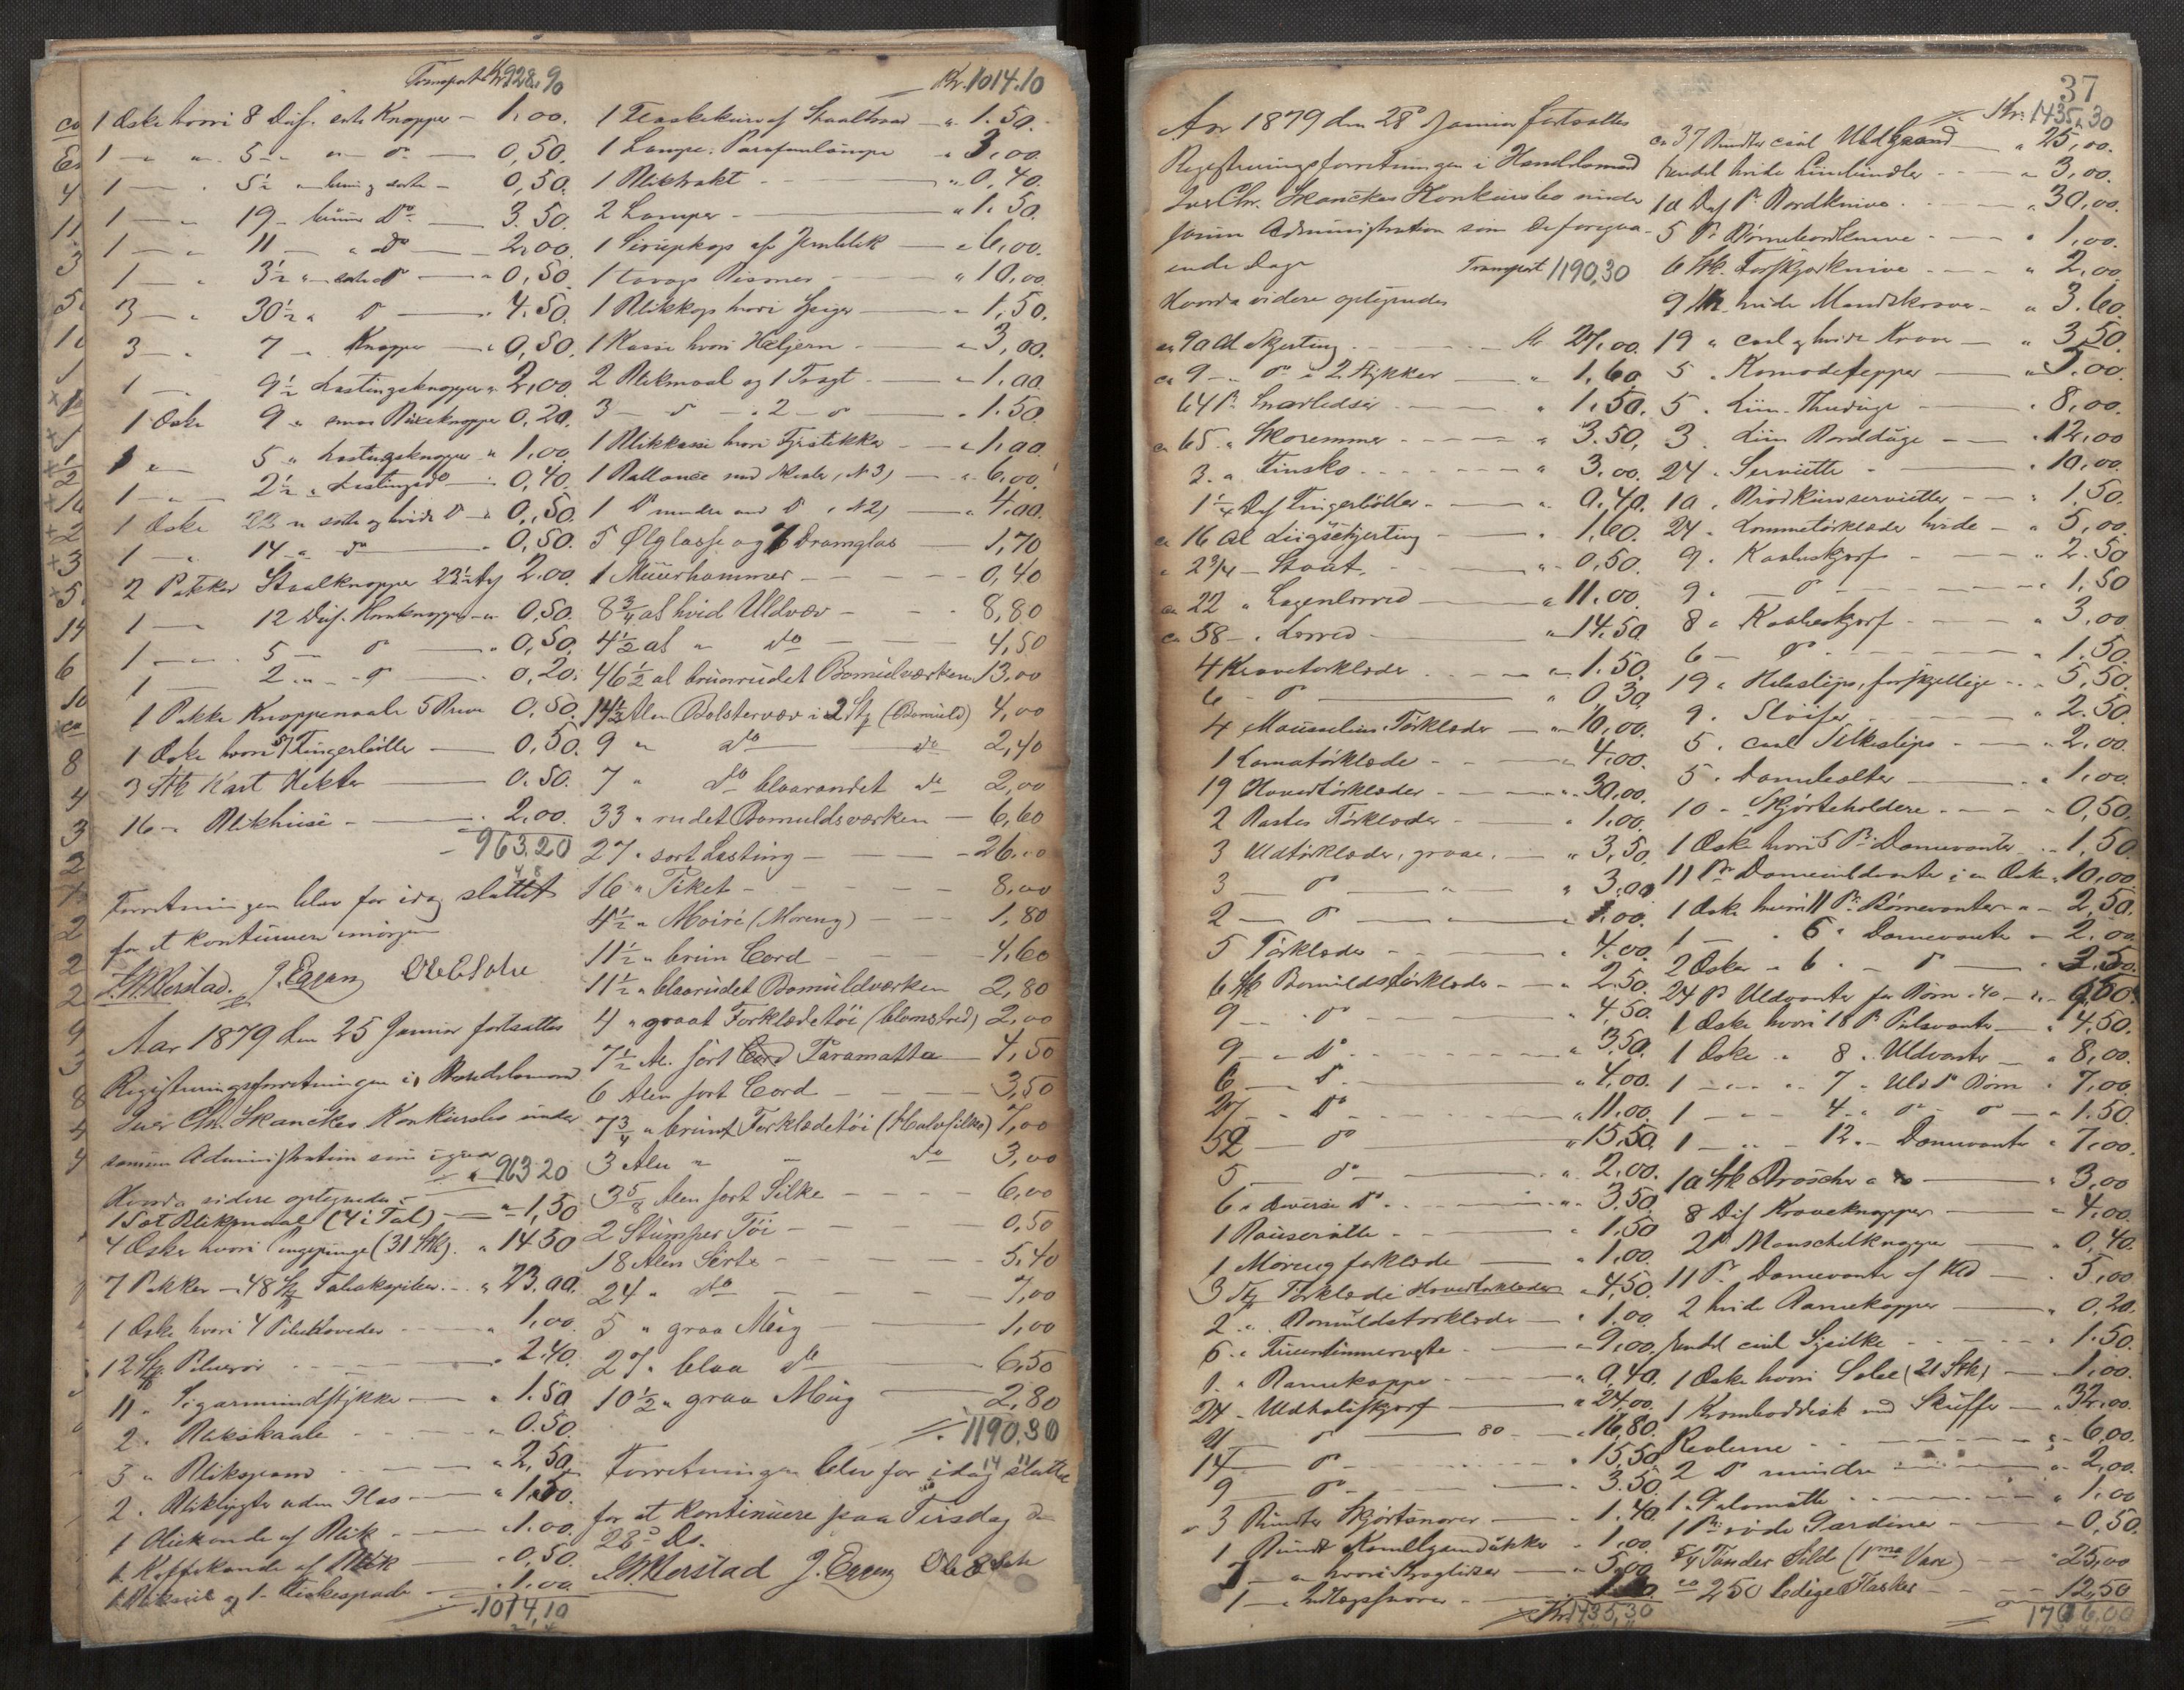 Transport Kr 928.90
1 Æske hvori 8 Duß. sorte Knapper — 1.00.
1 — " 5 — " — do — 0,50.
1 — " 5½ " brune og sorte — 0,50.
1 — " 19 — brune Do — 3.50.
1 — " 11 — " do — 2,00.
1 — " 3½ " sorte do — 0,50.
3 — " 30½ " do — 4.50.
3 — " 7 " Knapper — 0,50.
1 — 9½ Lastingsknapper " 2,00.
1 Æske 9 " smaa Buxeknapper 0,20.
1 " — 5 " Lastingsknapper " 1,00.
1 — 2½ " Lastings do — 0,40.
1 Æske 22 " sorte og hvide do — 0,50.
1 — " 14 " do — 0,50.
2 Pakker Staalknapper 22½ Dß 2.00.
1 — 12 Duß. Hornknapper — 0,50.
1 — " 5 — do — 0,50.
1 — 2 " — do — 0,20.
1 Pakke Knappenaale 5 Breve 0,50.
1 Æske hvori 57 Fingerbøller — 0,50.
3 Stk Kart Hekter — 0.50.
16 — Blikhuse — 2,00.
963.20
Forretningen blev for idag sluttet
for at kontinuere imorgen
J. Eggen
Aar 1879 den 25 Januar fortsattes
Registreringsforretningen i Handelsmand
Iver Chr. Skanckes Konkursbo under
samme Administration som igaar
963.20
Hvorda videre optegnedes:
1 Sæt Blikmaal (4 i Tal) — " 1,50
4 Æsker hvori Pengepunge (31 Stk). " 14.50
7 Pakker — 48 Stk Tobakspiber — " 23.00.
1 Æske hvori 4 Pibehoveder — 1,00.
12 Stk Piberør — 2.40.
11 " Sigarmundstykke — " 1.50
2 " Blikskaale — " 0.50.
3 " Blikspand — " 2,50.
2 " Bliklygter uden Glas — " 1,50.
1 Kande af Blik — 1.00.
1 Kaffekande af Blik — 0,50.
1 Bliksil og 1 Fiskespade — 1.00
1014,10
Kr. 1014.10
1 Flaskekurv af Staaltraad — " 1.50.
1 Lampe: Parafinlampe " 3,00.
1 Bliktrakt — " 0,40.
2 Lamper — " 1.50.
1 Sirupkop af Jernblik — " 6,00.
1 Bismer — " 10,00
1 Blikkop hvori Spiger — " 1,50.
1 Kasse hvori Hæljern — " 3,00.
2 Blikmaal og 1 Tragt — " 1,00.
3 — do — " 2 — do " 1.50.
1 Blikkasse hvori Fyrstikker — " 1,00.
1 Ballance med Skaaler, (N 3) — " 6,00.
1 Do mindre med Do (N 2) — " 4,00.
5 Ølglasse og 7 Dramglas — 1,70
1 Murerhammer — 0,40
8¾ al hvid Uldvæv — 8,80
4½ al " do — 4,50
46½ al brunrudet Bomuldværken 13,00
14½ Alen Bolstervæv i 2 Stk (Bomuld) 4,00
9 " do — do 2,40
7 " do blaarandet do 2,00
33 " rudet Bomuldsværken — 6,60
27 " sort Lasting — 26.00
16 " Piket — 8,00
4½ " Moiré (Moreng) — 1,80
11½ " brun Cord — 4,60
11½ " blaarudet Bomuldværken 2,80
4 " graat Forklædetøi (blomstred) 2,00
7½ Al. sort Cord Paramatta — 4,50
6 Alen sort Cord — 3,50
7¾ " brunt Forklædetøi (Halvsilke) 7,00
3 Alen " — do 3,00
3⅝ Alen sort Silke — 6,00
2 Stumper Tøi — 0,50
18 Alen Sirts — 5.40
24 " do — 7,00
5 " graa Møig — 1,00
27 " blaa do — 6,50
10½ " graa Møig — 2,80
1190,30
Forretningen blev for idag sluttet
for at kontinuere paa Tirsdag den
28de Ds.
J. Eggen
37
Aar 1879 den 28de Januar fortsattes
Registreringsforretningen i Handelsmand
Iver Chr. Skanckes Konkursbo under
samme Administration som de foregaa-
ende Dage Transport 1190,30
Hvorda videre optegnedes
ca 90 Al Skjerting — Kr 27,00.
ca 9 — " do i 2 Stykker — " 1,60
64 Pr Snørledser — " 1,50.
ca 65 " Skoremmer — " 3.50.
3 " Finsko — " 3,00.
1¼ Duß Fingerbøller — " 0,40.
ca 16 al Liigskjerting — " 1,60.
" 2¾ — Stout — " 0,50.
ca 22 " Lagenlerred — " 11.00.
ca 58 — " Lerred — " 14.50.
4 Kravetørklæder — " 1.50.
6 — do — " 0,30
4 Mousselins Tørklæder — " 10,00.
1 Lamatørklæde — " 4,00.
19 Hovedtørklæder — " 30,00.
2 Bastes Tørklæder — " 1,00.
3 Uldtørklæder, graae. — " 3,50.
3 — do — " — " 3,00
2 — do — " — " 1.00.
5 Tørklæder — " 4.00.
6 Stk Bomuldstørklæder — " 2.50.
9 — " do — " 4,50.
9 — " Do — " 3,50.
6 — " Do — " 4,00.
27 — " Do — " 11.00.
52 — do — " 15,50.
5 — do — " 2.00.
6 " diverse Do — " 3,50.
1 — 1,50
1 Moreng forklæde — " 1,00.
3 Stk Tørklæde Hovedtørklæder " 4,50.
2 " Bomuldstørklæde — " 1.00.
6 " — " 9,00.
1 " Barnekappe — " 0,40.
24 — Uldhalsskjærf — " 24,00.
21 — do — 80 — " 16,80.
14 — do — " 15,50
9 — do — 3.50.
" 3 Bundter Skjørtsnorer — " 1.40.
1 Bundt — 1,00.
7 — " hvori — 5,00
1 —
Kr 1435,30
Kr. 1435,30
ca 37 Bundter coul. Uldgarn " 25,00.
endel hvide — " 3,00.
10 Duß Pr Bordknive — " 30,00.
5 Pr Børnebordknive — " 1,00.
6 Stk. Torskjærknive — " 2,00
9 Stk. hvide Mandskraver — " 3.60.
19 " coul og hvide Kraver — " 3,50.
5 " Komodetepper — " 5.00.
5 " Lin. Theduge — " 8,00.
3 " Lin Bordduge — " 12,00
24 " Servietter — " 10,00.
10 " Brødkurvservietter — " 1,50.
24 " Lommetørklæder hvide — " 5,00.
9 " Kaaleskjærf — " 2.50
9 " — do — " 1,50
8 " Kaaleskjærf — " 3,00
6 — do — " 1.50.
19 " Halsslips, forskjellige — 5,50
9 " Sløifer — " 2.50.
5 " coul Silkeslips — " 2,00.
5 " Damebælter — " 1,00.
10 — Skjørteholdere — " 0,50.
1 Æske hvori 5 Pr Damevanter — " 1,50.
11 Pr Dameuldvanter i en Æske " 10,00.
1 Æske hvori 11 Pr Børnevanter — " 2,50.
1 — " 6 " Damevanter — 2,00.
2 Æsker " 6 " — do — 2,50.
24 Pr Uldvanter for Børn
1 Æske hvori 18 Pr Pulsvanter — " 4,50.
1 Æske " 8 " Uldvanter — " 8,00.
1 — " 7 " Uld Do Børn " 7,00
1 — " 4 " do — do " 1.50.
1 — " 12 — Damevanter " 7,00.
10 Stk Broscher — " 3,00
8 Duß Kraveknapper — " 4,00.
2 Pr Manschetknapper — " 0,40.
11 Pr Damevanter af Uld — " 5,00.
2 hvide Barnekapper — " 0,20.
Endel coul Sysilke — " 1.50.
1 Æske hvori Seler (21 Stk) — " 1,00.
1 Kramboddisk med Skuffer — " 32,00.
Reolerne — " 6,00.
2 Do mindre — " 2,00.
1 — " 1,00
1 Pr røde Gardiner — " 0,50.
5/4 Tønder Sild (1ma Vare) — " 25,00
ca 250 ledige Flasker — 12,50